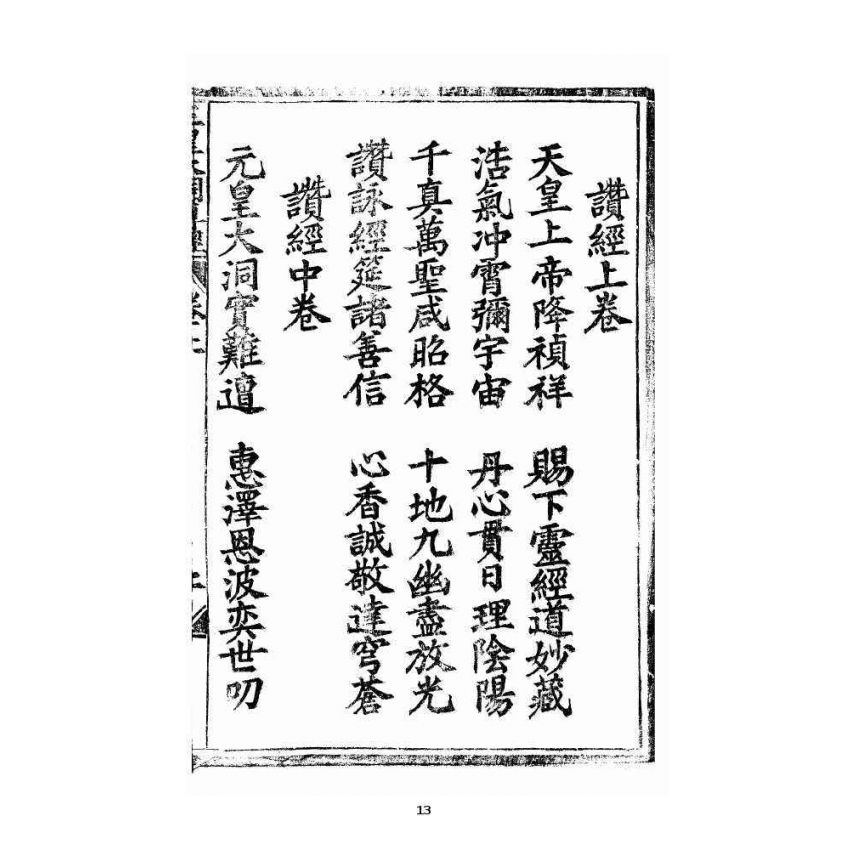 讚經上卷
天皇上帝降禎祥 賜下靈經道妙藏
浩氣冲霄彌宇宙 丹心貫日理陰陽
千真萬聖咸昭格 十地九幽盡放光
讚詠經筵諸善信 心香誠敬達穹蒼
讚經中卷
元皇大洞實難遭 惠澤恩波奕世叨
13